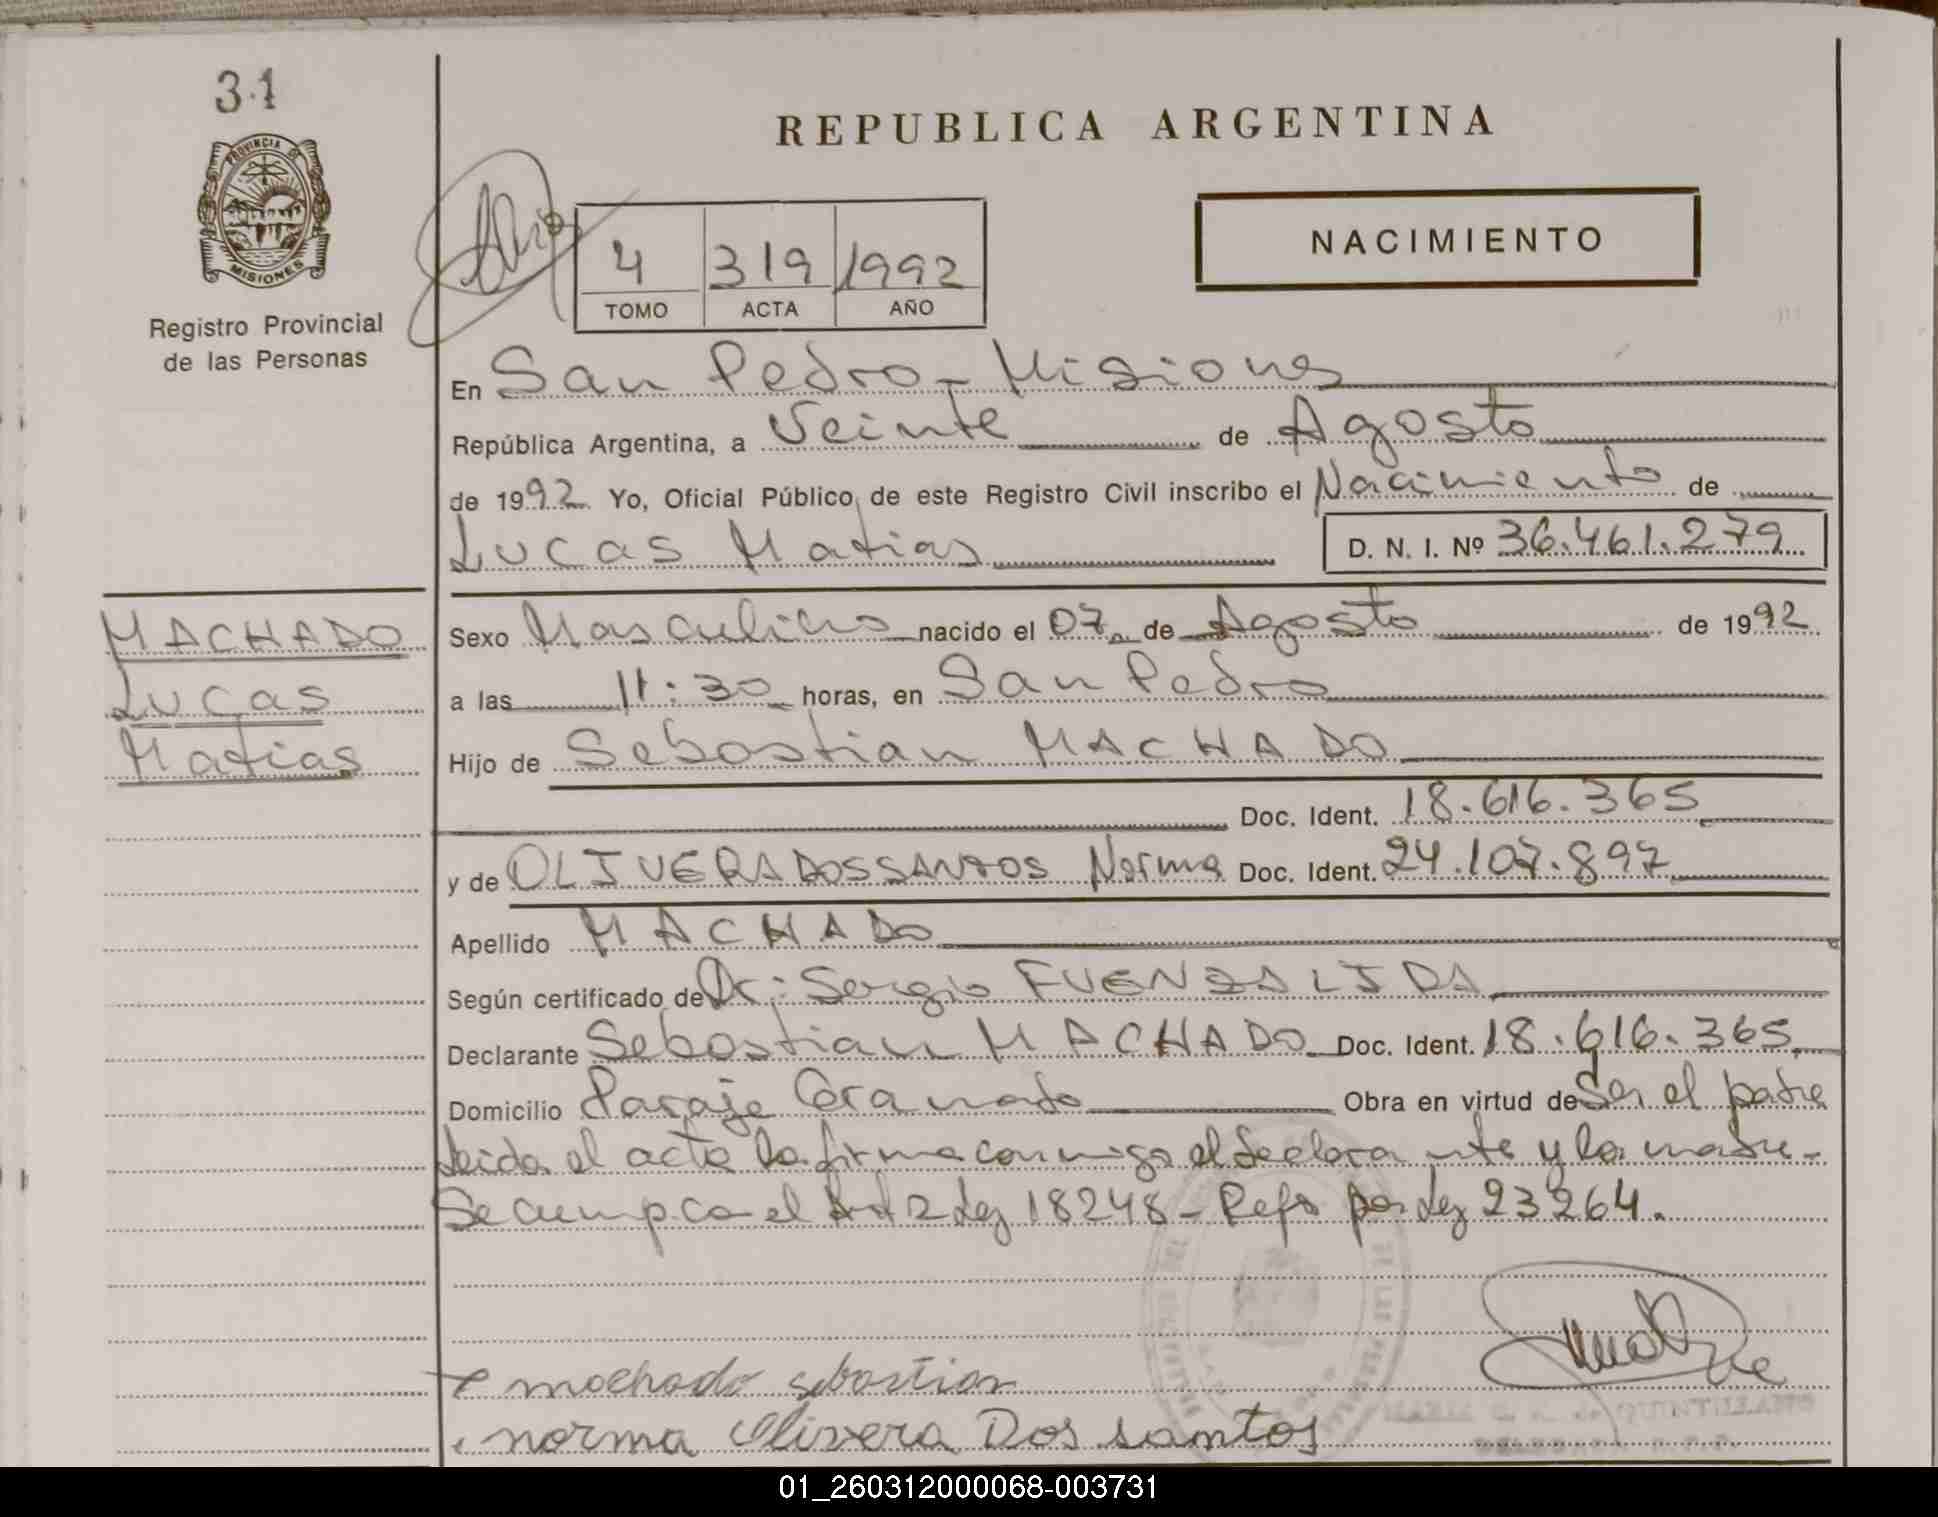 31
PROVINCIA DE
MISIONES
Registro Provincial
de las Personas
REPUBLICA ARGENTINA
NACIMIENTO
4 319 1992
TOMO ACTA AÑO
En San Pedro - Misiones
República Argentina, a Veinte de Agosto
de 1992 Yo, Oficial Público de este Registro Civil inscribo el Nacimiento de
Lucas Matias D. N. I. Nº 36.461.279
MACHADO
Lucas
Matias
Sexo Masculino nacido el 07 de Agosto de 1992
a las 11:30 horas, en San Pedro
Hijo de Sebastian MACHADO
Doc. Ident. 18.616.365
y de OLIVERA DOSSANTOS Norma Doc. Ident. 24.107.897
Apellido MACHADO
Según certificado de Dr: Sergio FUENZALIDA
Declarante Sebastian MACHADO Doc. Ident. 18.616.365
Domicilio Paraje Granado Obra en virtud de Ser el padre
Leida el acta la firma conmigo el declarante y la madre-
Se cump. con el Art 2 Ley 18248 - Refo por Ley 23264.
machado sebastian
norma Olivera Dos santos
01_260312000068-003731